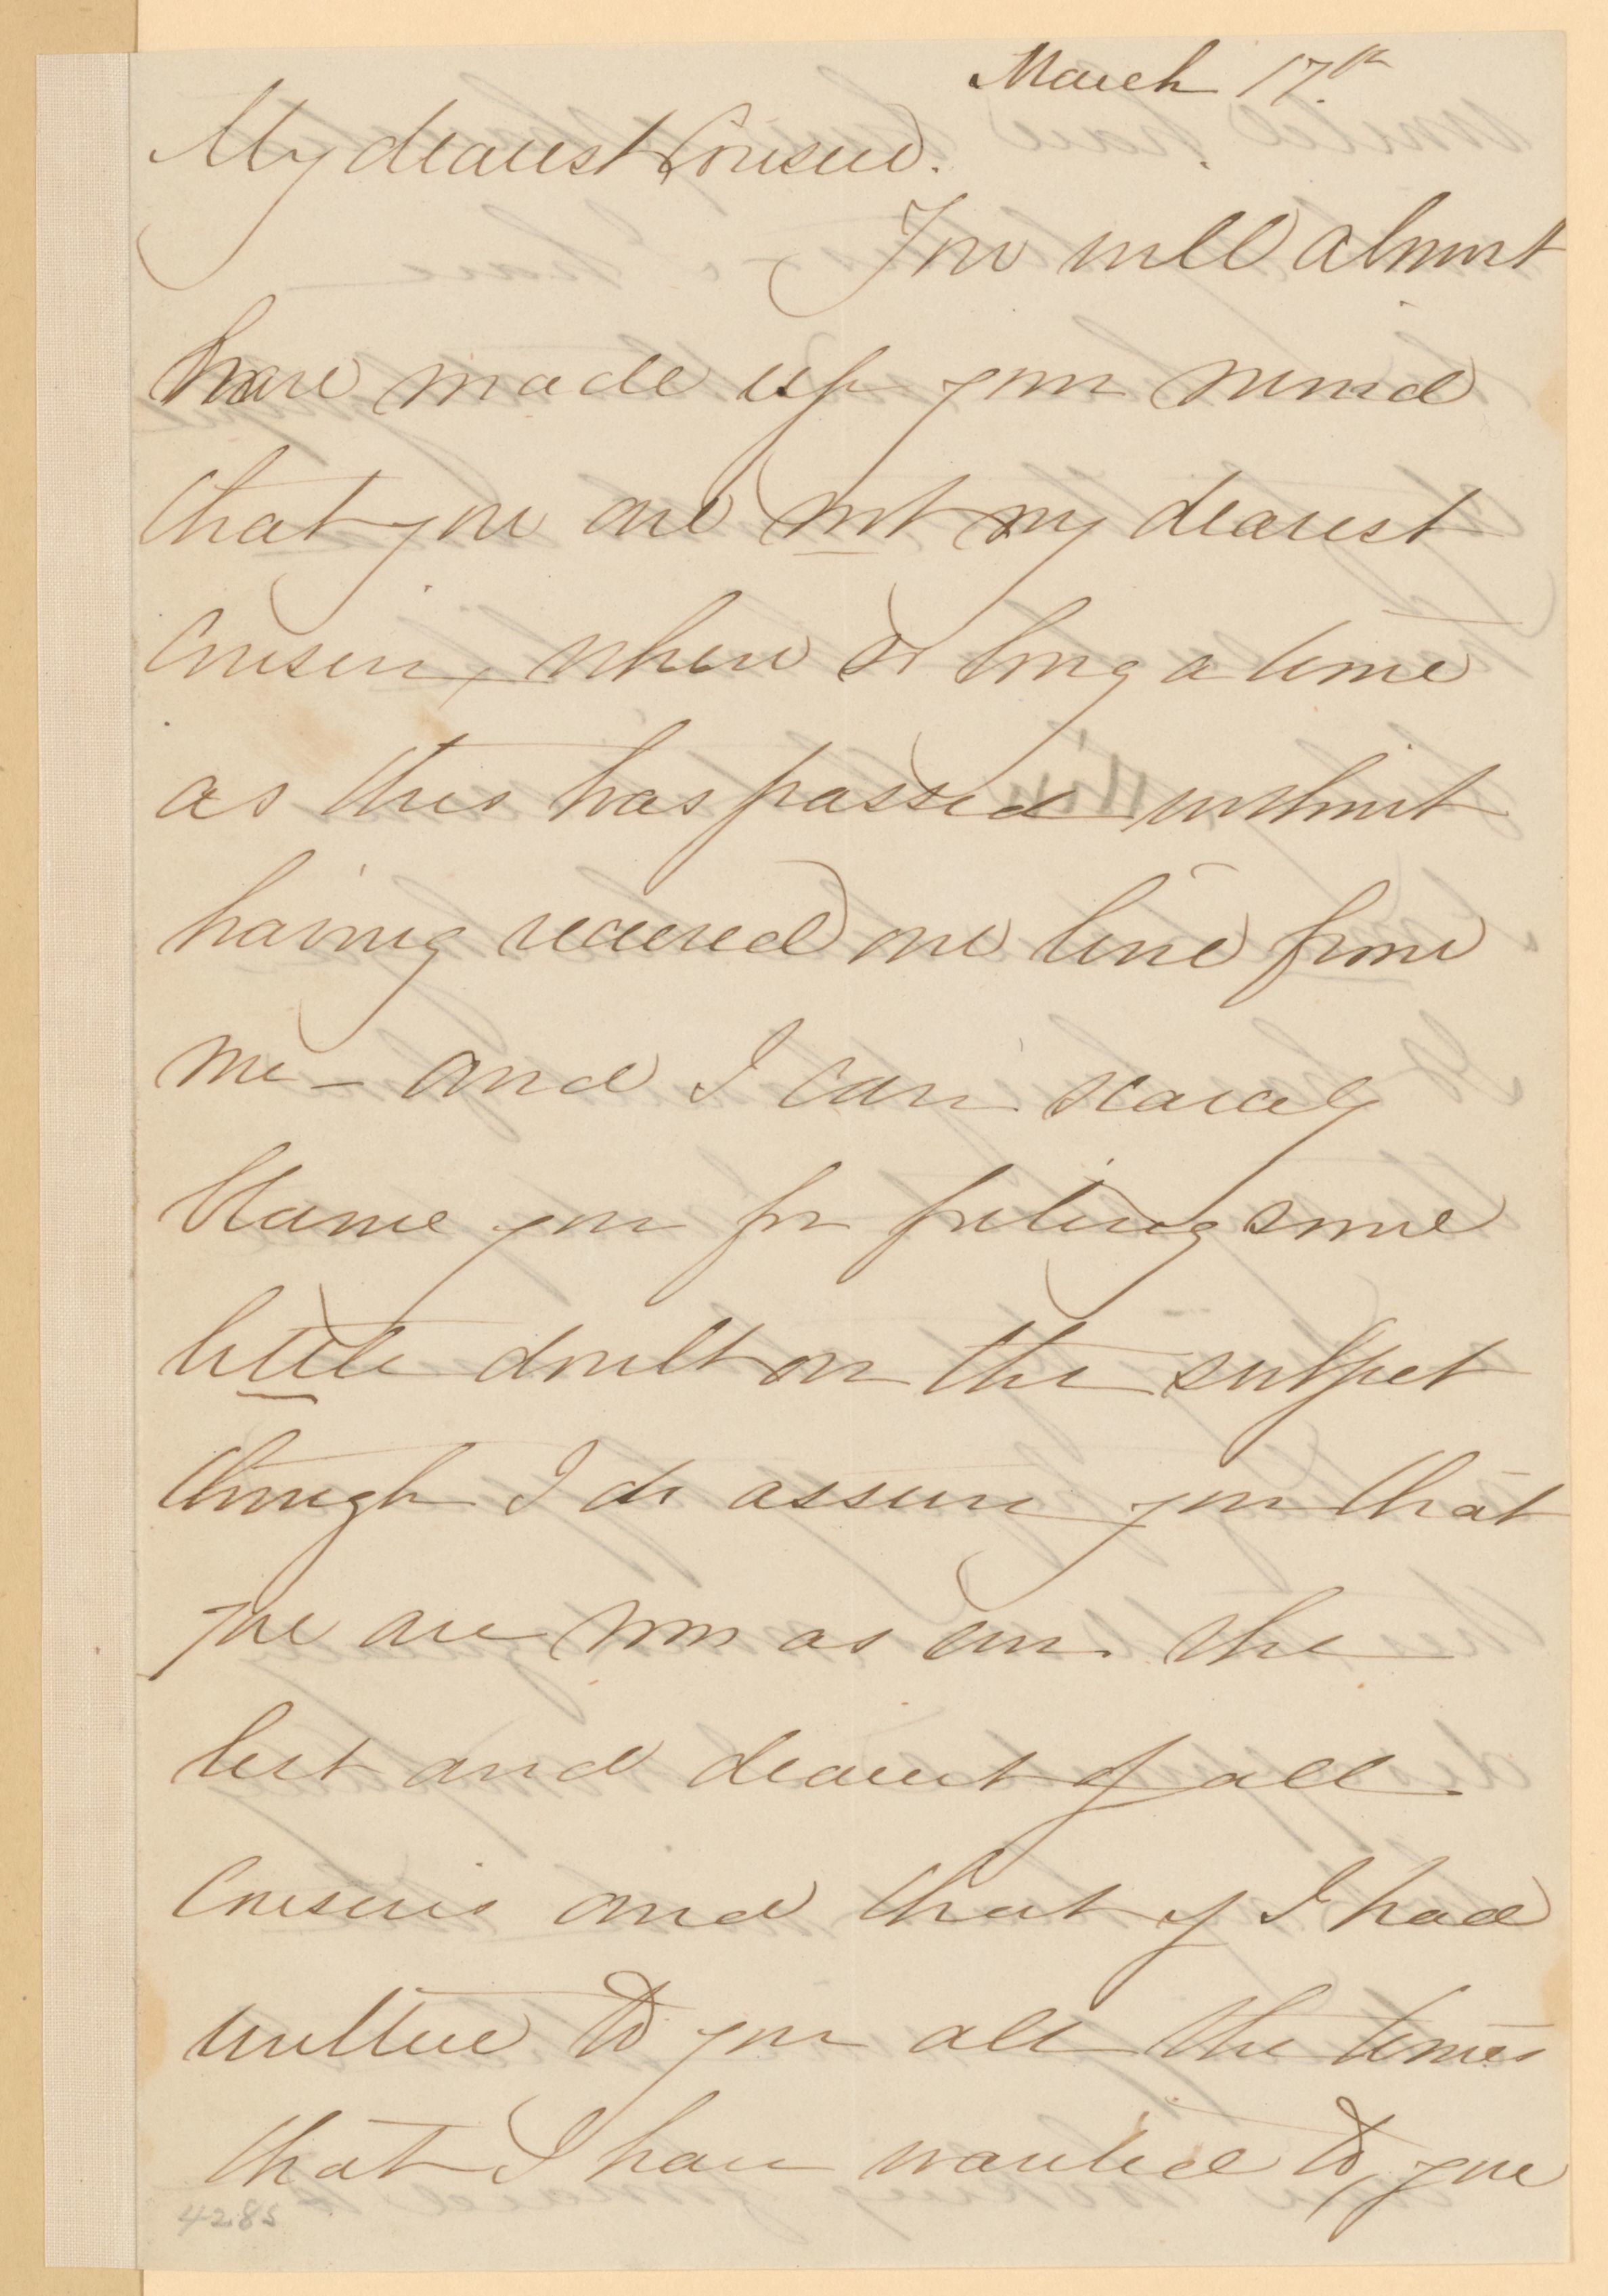 March 17th
My dearest Cousin.
You will almost
have made up your mind
that you are not my dearest
Cousin, when so long a time
as this has passed without
having received one line from
me - and I can scarcely
blame you for feeling some
little doubt on the subject
though I do assure you that
you are now as ever the
best and dearest of all
Cousins and that if I had
written to you all the times
that I have wanted to, you
4285